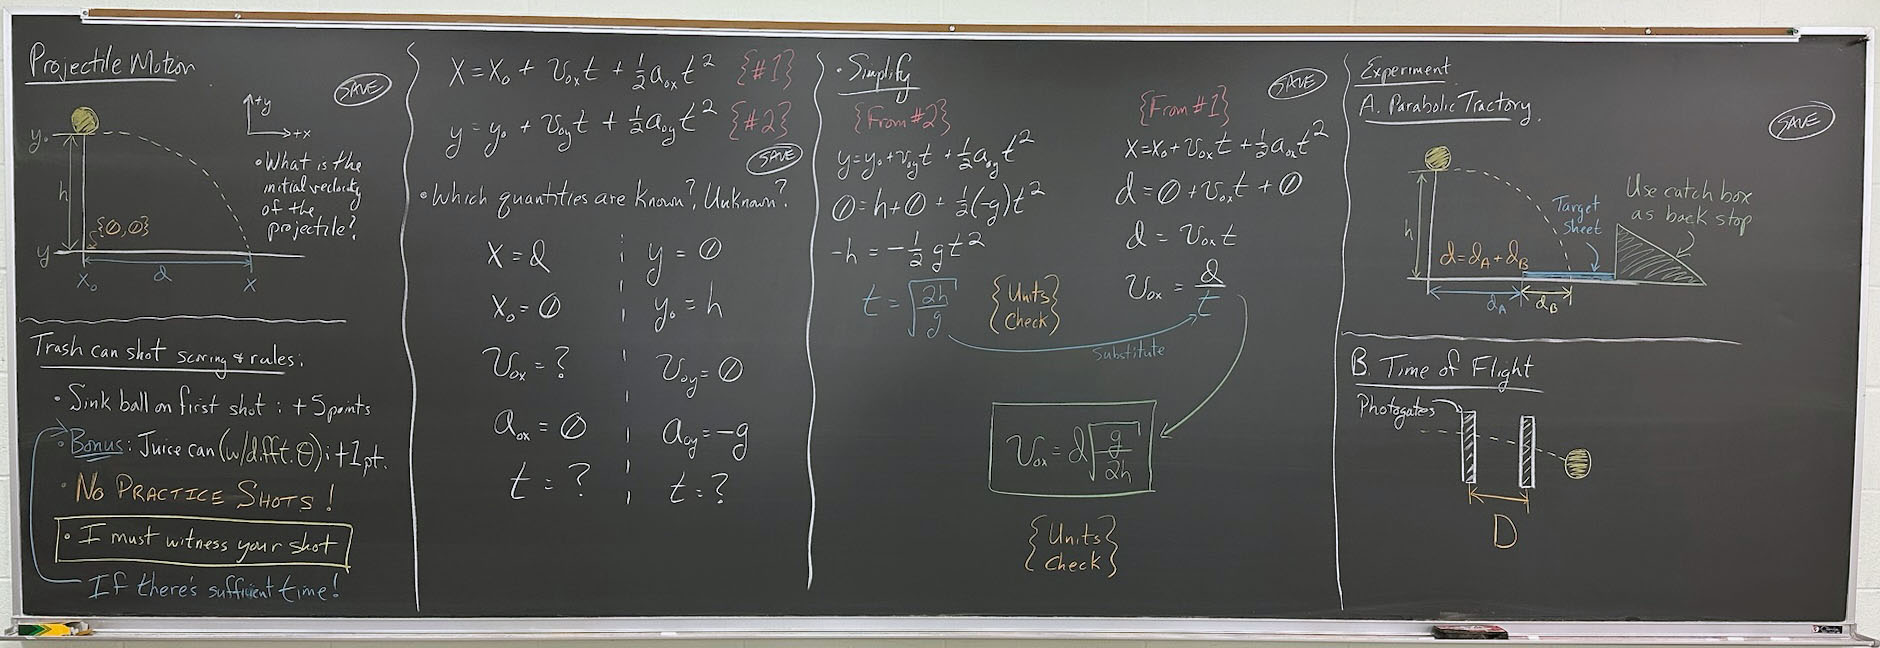 Projectile Motion
SAVE
+y
+x
y₀
h
{0,0}
y
x₀
d
x
• What is the
initial velocity
of the
projectile?
Trash can shot scoring & rules:
• Sink ball on first shot : +5 points
• Bonus: Juice can (w/diff't. θ) : +1 pt.
• NO PRACTICE SHOTS!
• I must witness your shot
If there's sufficient time!
X = X₀ + V₀ₓt + ½a₀ₓt² {#1}
y = y₀ + V₀yt + ½a₀yt² {#2}
SAVE
• Which quantities are known?, Unknown?
X = d
y = 0
X₀ = 0
y₀ = h
V₀ₓ = ?
V₀y = 0
a₀ₓ = 0
a₀y = -g
t = ?
t = ?
• Simplify
SAVE
{From #2}
y = y₀ + v₀yt + ½a₀yt²
0 = h + 0 + ½(-g)t²
-h = -½gt²
t = √(2h/g)
{Units
Check}
{From #1}
X = X₀ + V₀ₓt + ½a₀ₓt²
d = 0 + V₀ₓt + 0
d = V₀ₓt
V₀ₓ = d/t
Substitute
V₀ₓ = d√(g/2h)
{Units
Check}
Experiment
A. Parabolic Tractory.
SAVE
h
d = dA + dB
Target
Sheet
Use catch box
as back stop
dA
dB
B. Time of Flight
Photogates
D